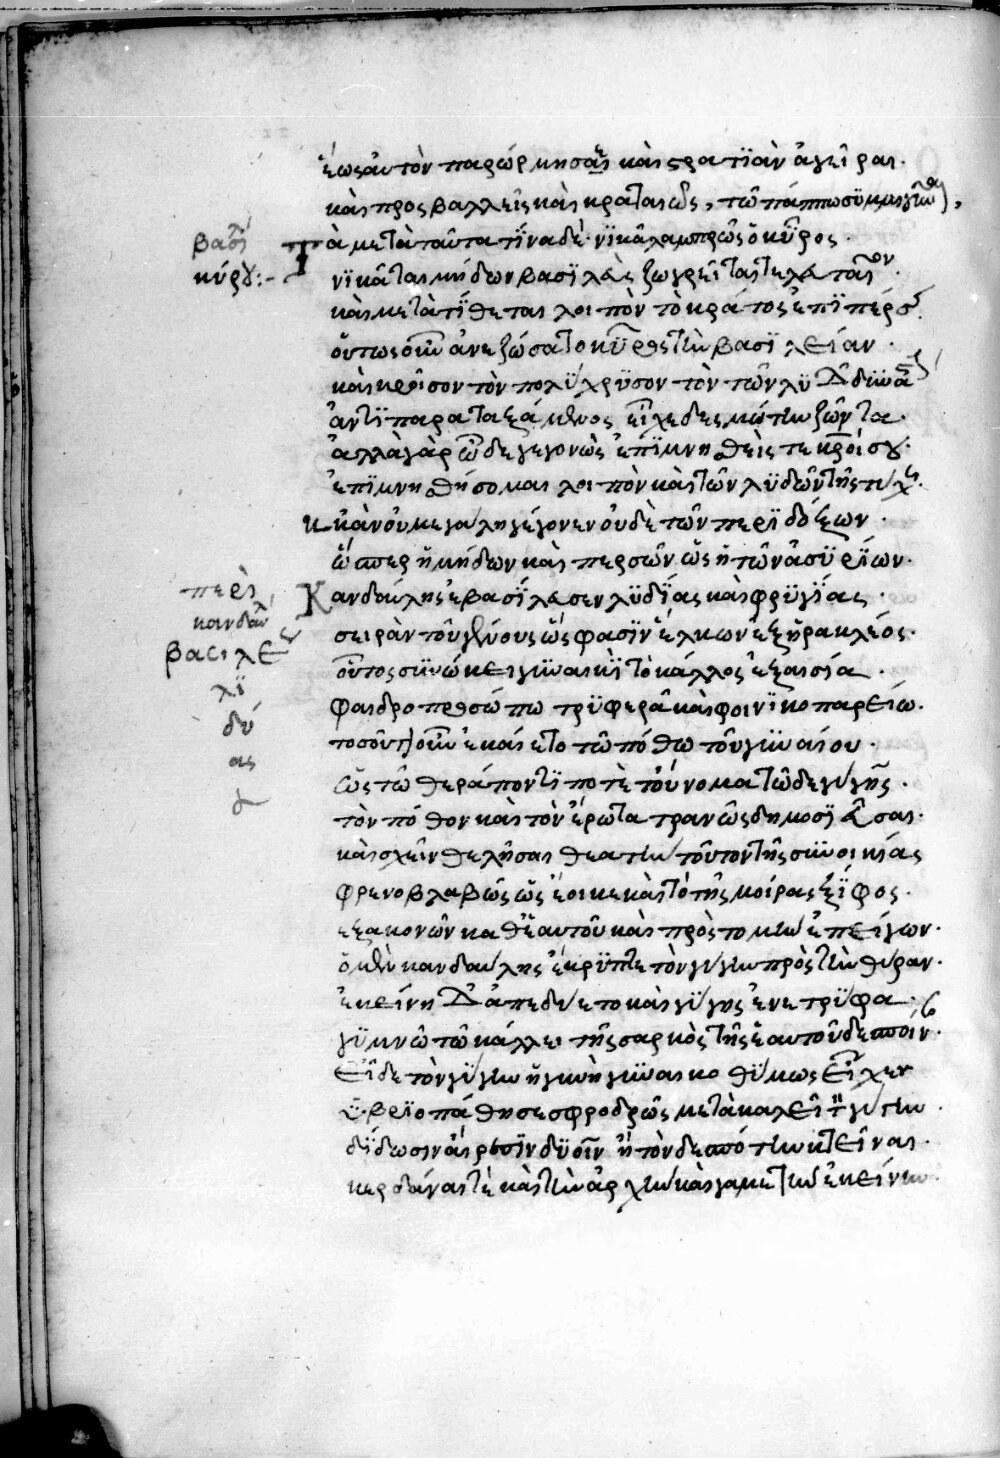 ἕως αὐτὸν παρώρμησας καὶ στρατϊὰν ἀγεῖραι·
καὶ προσβαλλεῖς καὶ κραταιῶς, τῶ πάππω συμμιγῆναι,
βασϊ
κύρου:-
Τὰ μετὰ ταῦτα τίνα δέ· νϊκᾶ λαμπρῶς ὁ κῦρος·
νϊκᾶται μήδων βασϊλεὺς ζωγρεῖται τελευταῖον·
καὶ μετατϊθεται λοιπὸν τὸ κράτος ἐπϊ πέρσας·
οὕτως οὖν ἀνεζώσατο κῦρος τὴν βασϊλείαν·
καὶ κροῖσον τὸν πολϋχρυσον τὸν τῶν λϋδῶν δυνάστην
ἀντϊπαραταξάμενος εἷχε δεσμώτην ζῶντα·
ἀλλὰ γὰρ ὧδε γεγονὼς ἐπϊμνηθεὶς τε κροίσου·
ἐπϊμνηθήσομαι λοιπὸν καὶ τῶν λϋδῶν τῆς τύχης·
κἂν οὐ μεγάλη γέγονεν οὐδὲ τῶν περϊδόξων·
ὥσπερ ἡ μήδων καὶ περσῶν ὡς ἡ τῶν ἀσϋρϊων·
περὶ
κανδαύλ
βασιλε
λϊ
δύ
ας
Κανδαύλης ἐβασϊλευσεν λϋδϊας καὶ φρϋγϊας·
σειρὰν τοῦ γένους ὥς φασϊν ἕλκων ἐξ ἡρακλέος·
οὗτος συνώκει γυναικὶ τὸ κάλλος ἐξαισία·
φαιδροπροσώπω τρϋφερᾶ καὶ φοινϊκοπαρείω·
τοσοῦτον οὖν ἐκαίετο τῶ πόθω τοῦ γυναίου·
ὡς τῶ θεράποντϊ ποτὲ τοὔνομα τῶδε γύγης·
τὸν πόθον καὶ τὸν ἔρωτα τρανῶς δημοσϊεῦσαι·
καὶ σχεῖν θελῆσαι θεατὴν τοῦτον τῆς συνοικίας
φρενοβλαβῶς ὡς ἔοικε καὶ τὸ τῆς μοίρας ξϊφος·
εξακονῶν καθ ἑαυτοῦ καὶ πρὸς τομὴν ἐπείγων·
ὁ μὲν κανδαύλης ἔκρϋπτε τὸν γύγην πρὸς τὴν θύραν·
ἐκείνη δ ἀπεδύετο καὶ γϋγης ἐνετρϋφα·
γϋμνῶ τῶ κάλλει τῆς σαρκὸς τῆς ἑαυτοῦ δεσποίνης·
εἶδε τὸν γϋγην ἡ γυνὴ γυναικοθϋμως εἷχεν
ϋβρϊοπάθησε σφοδρῶς μετακαλεῖ τὸν γύγην·
δϊδωσιν αἵρεσϊν δϋοῖν ἢ τὸν δεσπότην κτεῖναι·
κερδάναι τὲ καὶ τὴν ἀρχὴν καὶ γαμετὴν ἐκείνην